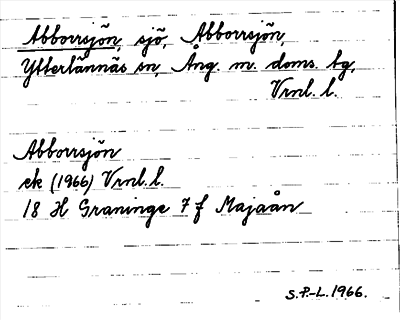 Abborrsjön, sjö, Abborrsjön,
Ytterlännäs sn, Ång. m. doms. bg,
Vrnl. l.
Abborrsjön
ek (1966) Vrnl. l.
18 H Graninge 7 f Majaån
S.P.-L. 1966.